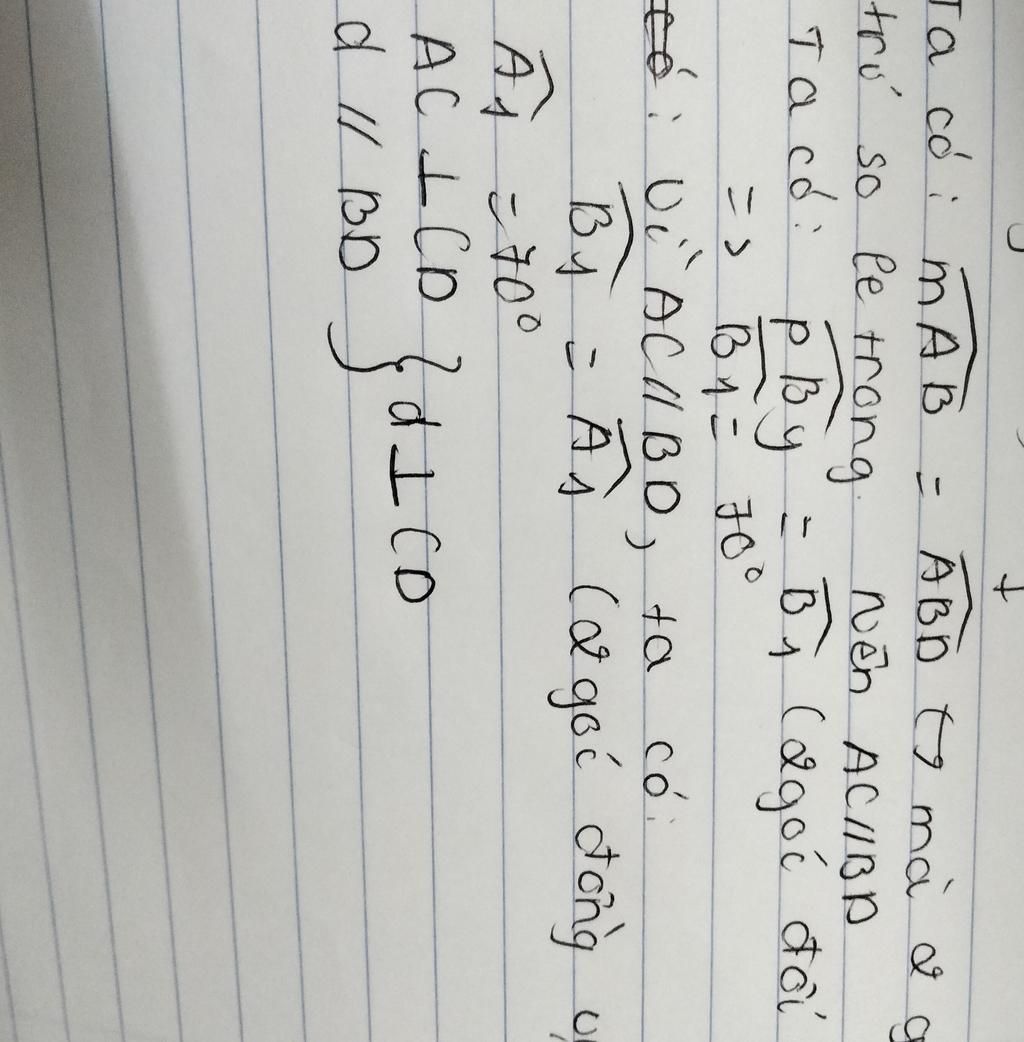 Ta có: mAB = ABD (→ mà 2 g
trí so le trong. nên AC//BD
Ta có: pBy = B1 (2 góc đối
=> B1 = 70°
có: Vì AC//BD, ta có:
B1 = A1 (2 góc đồng vị
A1 = 70°
AC ⊥ CD } d ⊥ CD
d // BD }